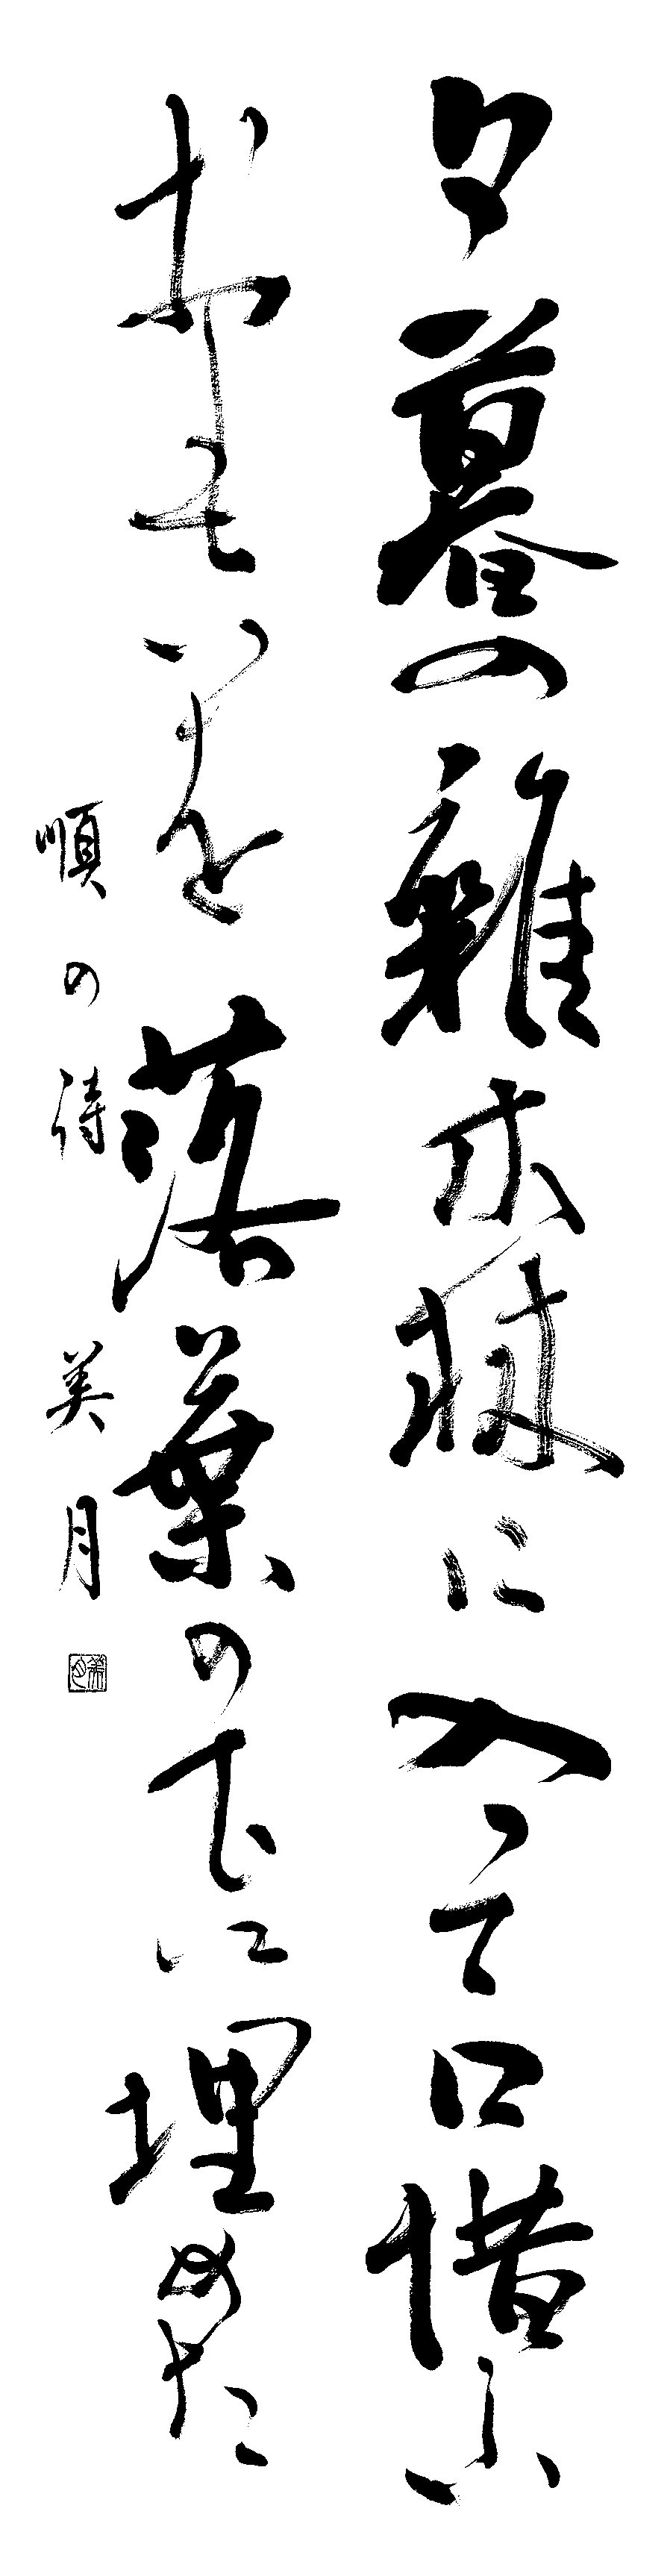 夕暮の雑木林に入って口惜しい
おもいを落葉の下に埋めた
順の詩 美月